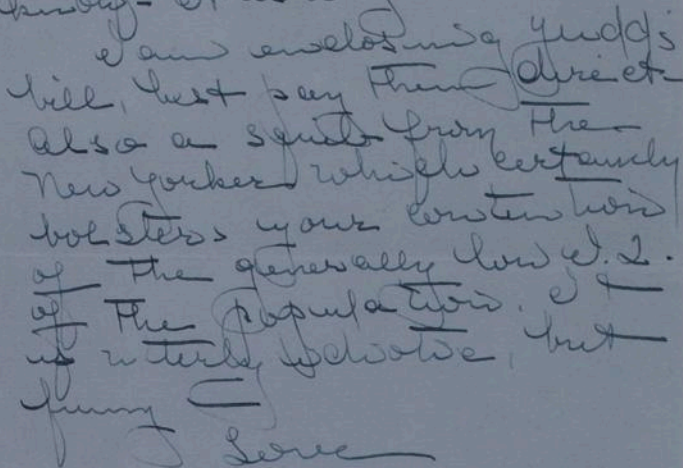 I am enclosing Judd's
bill, best pay them direct
also a squib from the
New Yorker which certainly
bolsters your contention
of the generally low I.Q.
of the population. It
is utterly idiotic, but
funny
Love